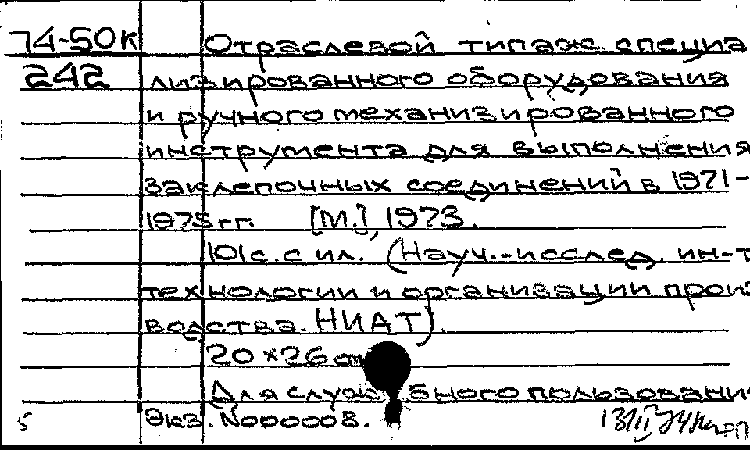 74-50к Отраслевой типаж специа
242 лизированного оборудования
и ручного механизированного
инструмента для выполнения
заклепочных соединений в 1971-
1975 гг. [М.], 1973.
101 с. с ил. (Науч.-исслед. ин-т
технологии и организации произ
водства. НИАТ).
20×26 см
Для служебного пользования
5 Экз. №000008.